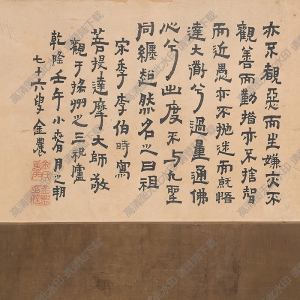 亦不覩惡而生嫌亦不
觀善而勤措亦不捨智
而近愚亦不抛迷而就悟
達大衜兮過量通佛
心兮出度不与凡聖
同躔超然名之曰祖
宋李伯時寫
菩提達摩大師敬
觀于揚州之三祝庵
乾隆壬午小春月之朔
七十六叟金農